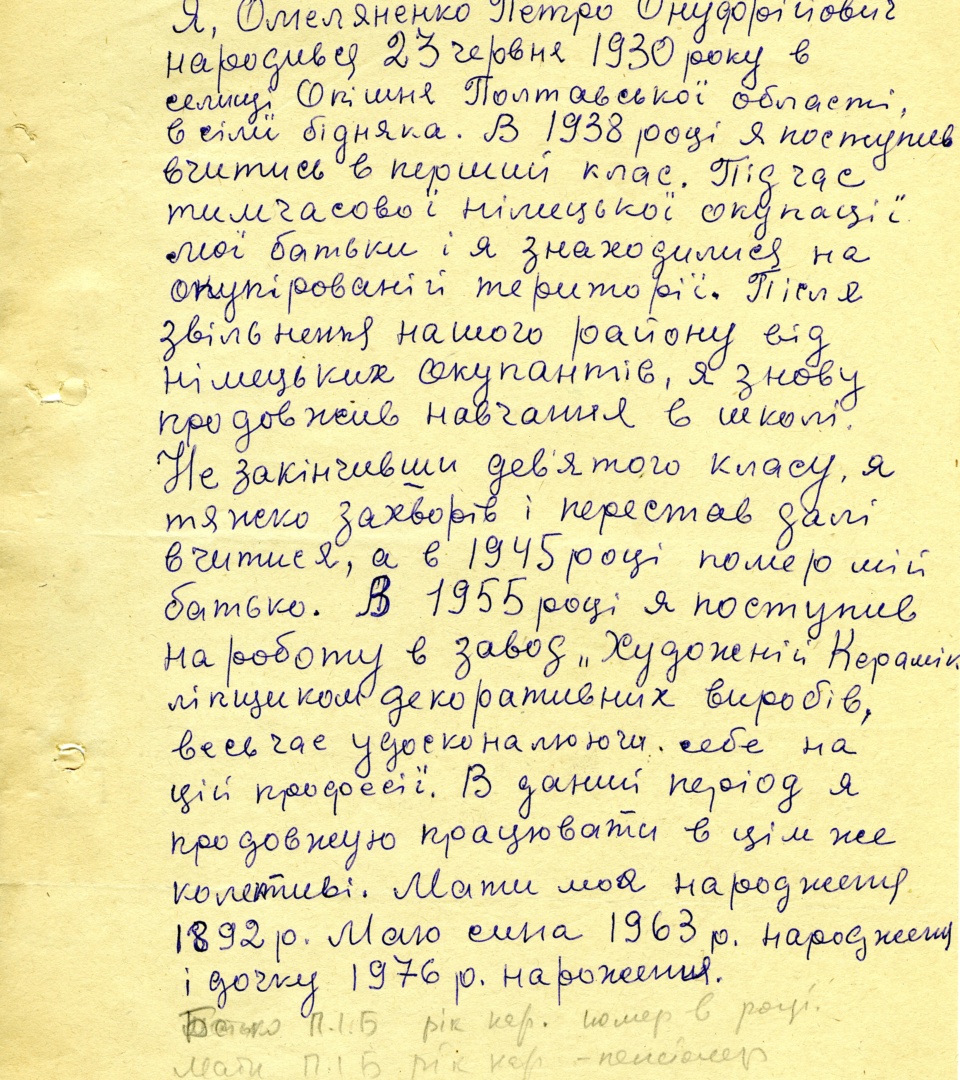 Я, Омеляненко Петро Онуфрійович
народився 23 червня 1930 року в
селищі Опішня Полтавської області,
в сім'ї бідняка. В 1938 році я поступив
вчитись в перший клас. Під час
тимчасової німецької окупації
мої батьки і я знаходилися на
окупірованій території. Після
звільнення нашого району від
німецьких окупантів, я знову
продовжив навчання в школі.
Не закінчивши дев'ятого класу, я
тяжко захворів і перестав далі
вчитися, а в 1945 році помер мій
батько. В 1955 році я поступив
на роботу в завод „Художній Керамік
ліпщиком декоративних виробів,
весь час удосконалюючи себе на
цій професії. В даний період я
продовжую працювати в цім же
колективі. Мати моя народження
1892 р. Маю сина 1963 р. народження
і дочку 1976 р. нароження.
Батько П.І.Б рік нар. помер в році.
Мати П.І.Б рік нар - пенсіонер